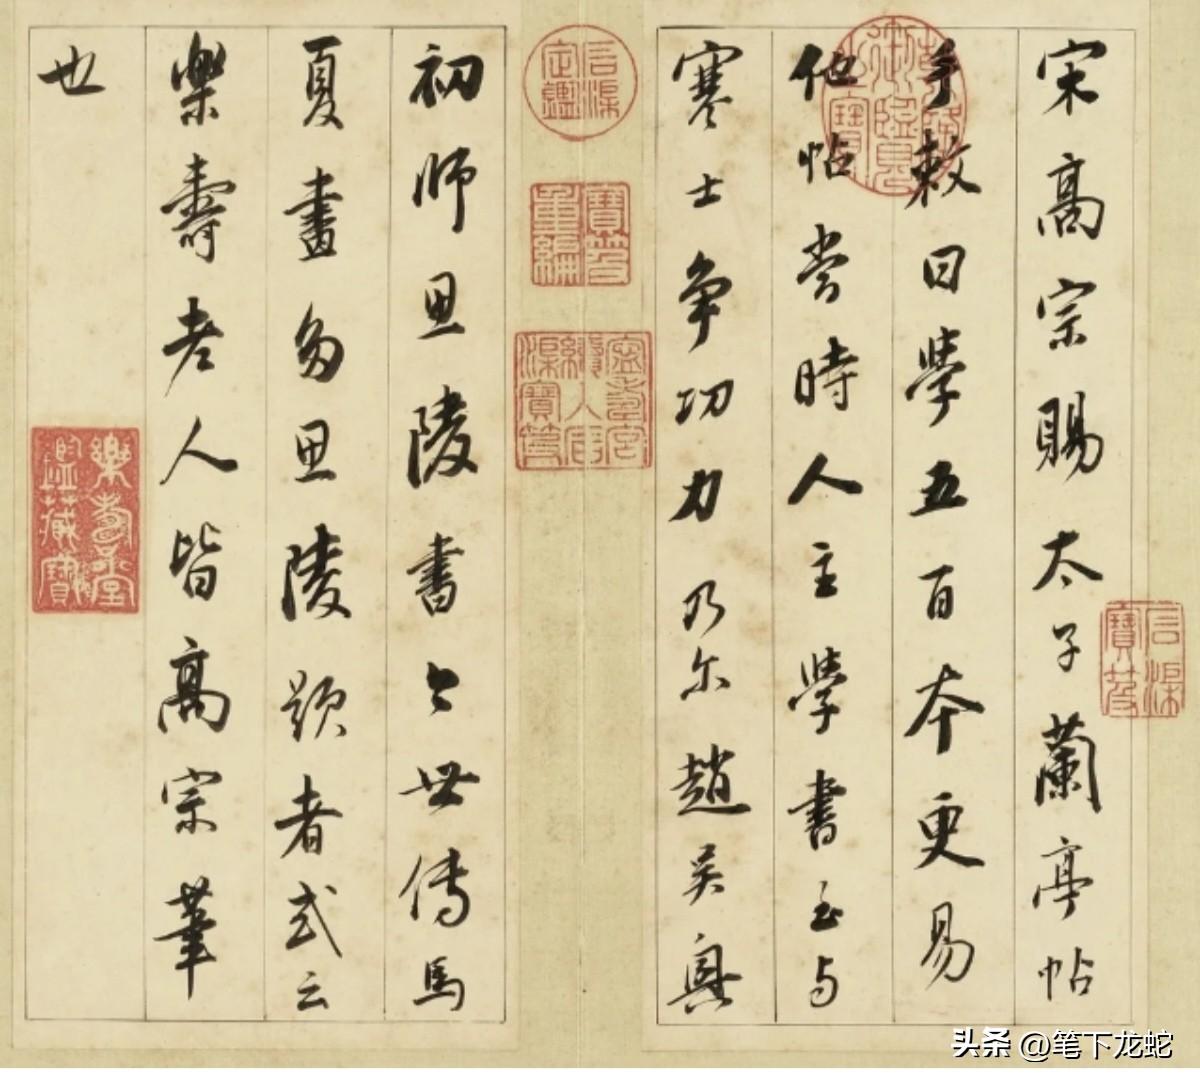 宋高宗賜太子蘭亭帖
手敕曰學五百本更易
他帖當時人主學書至与
寒士争功力乃尔趙吴興
初師思陵書今世傳馬
夏畫多思陵題者或云
樂壽老人皆高宗筆
也
石渠寶笈
乾隆御覽之寶
石渠定鑑
寶笈重編
寧壽宮續入石渠寶笈
樂壽堂鑑藏寶
头条 @笔下龙蛇